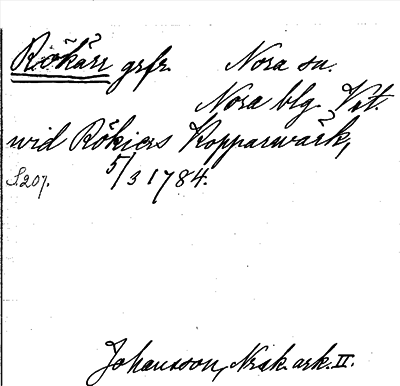 Rökärr grfr. Nora sn.
Nora blg. Vst.
wid Rökiers Kopparwärk,
S.207. 5/3 1784.
Johansson, Norak. ark. II.